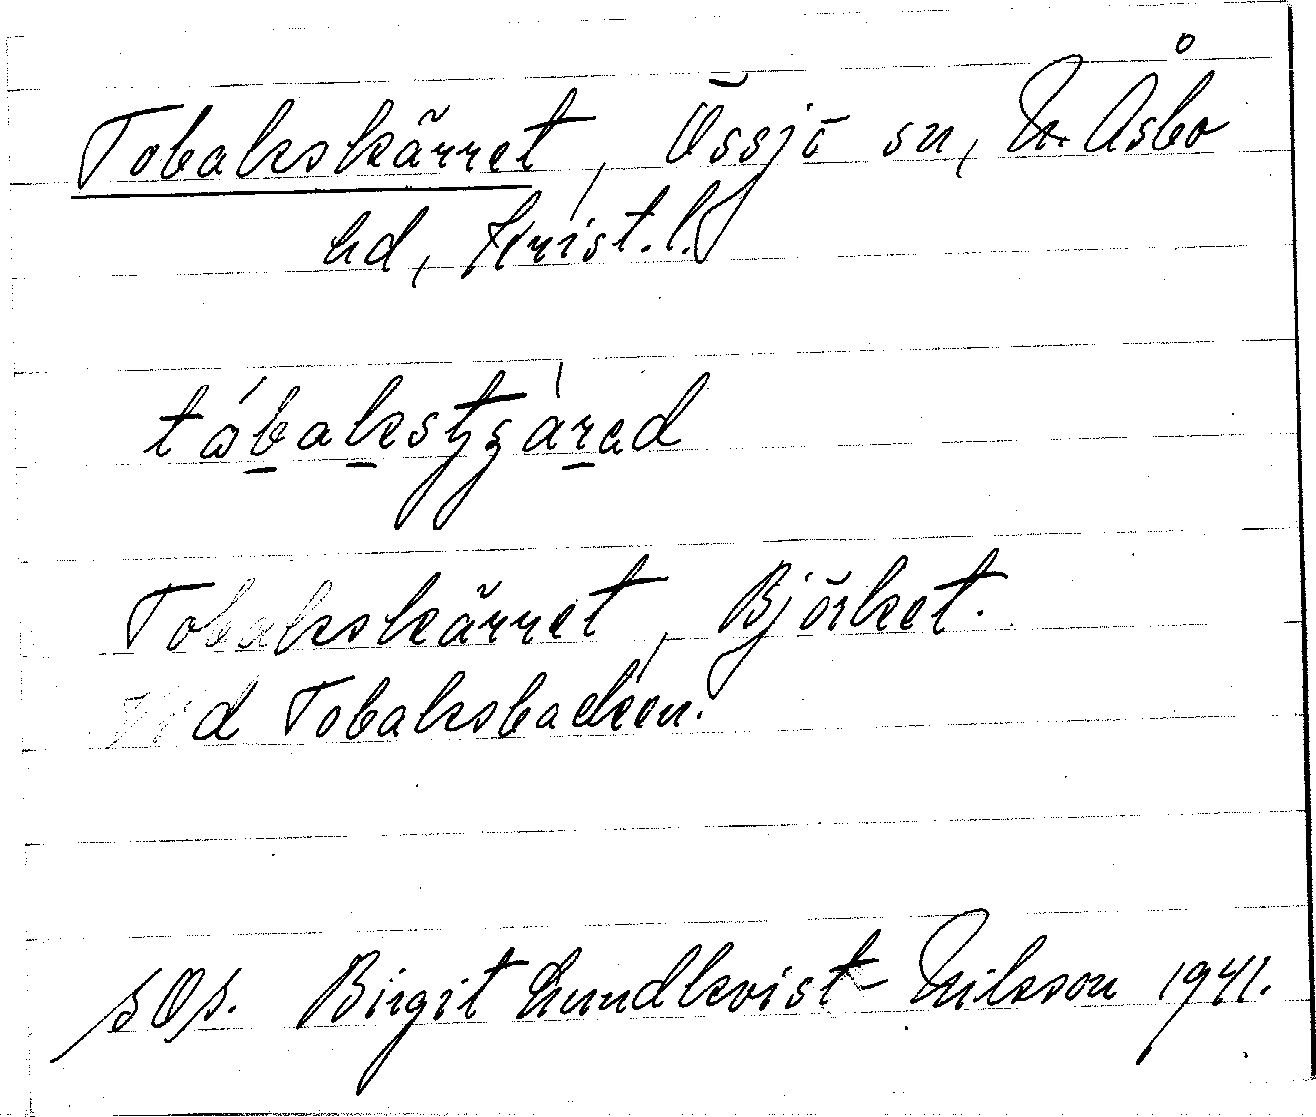 Tobakskärret, Össjö sn, N. Åsbo
hd, Krist. l.
Tobakskärret, Björket.
Vid Tobaksbacken.
Birgit Lundkvist-Nilsson 1941.